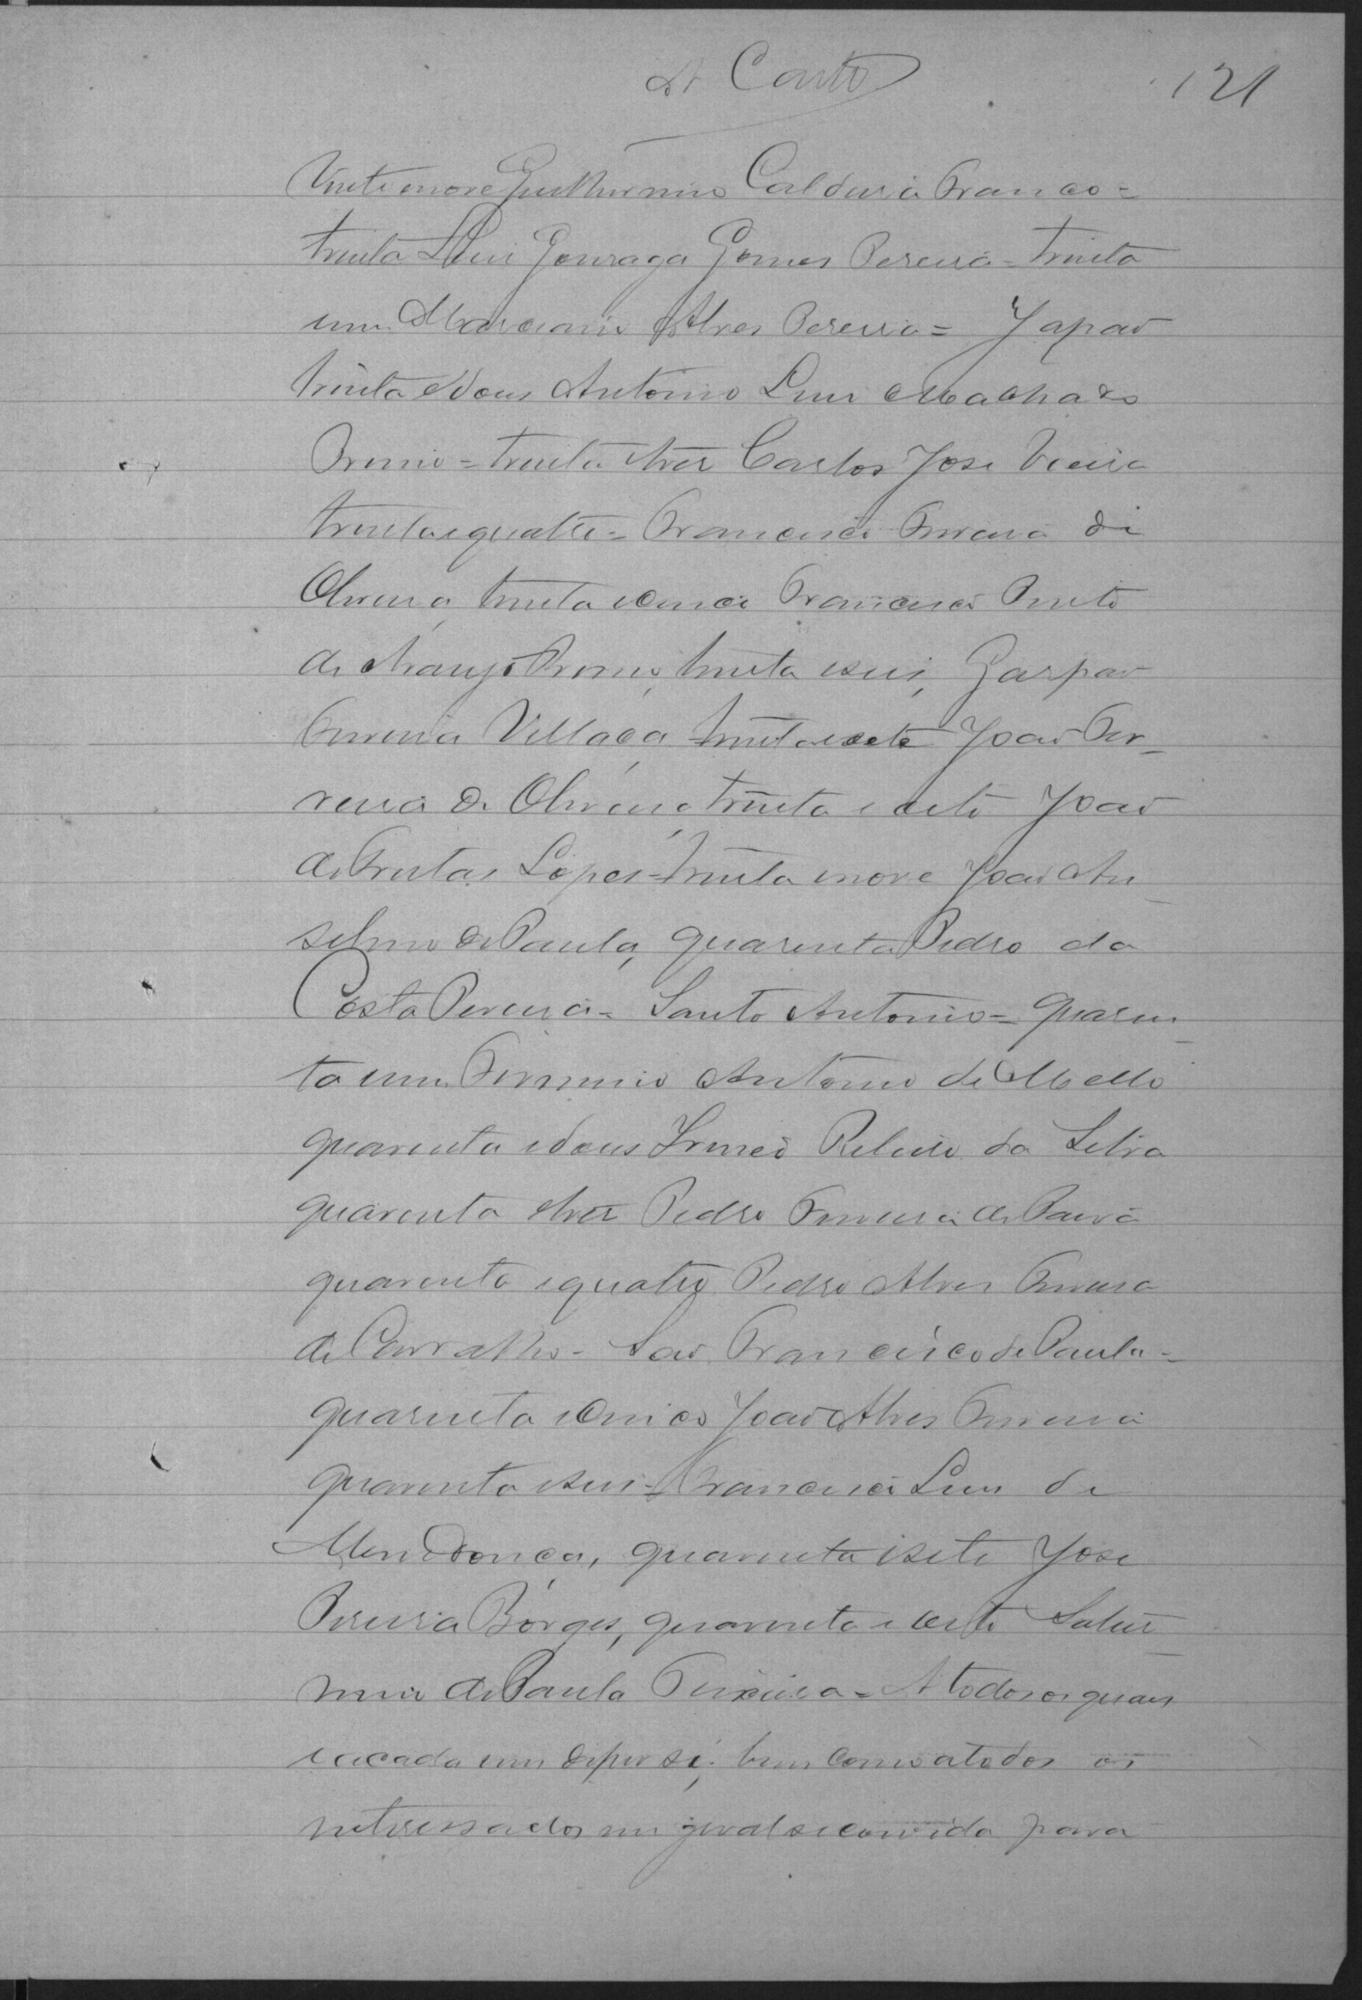 121
Vinte e nove Guilhermino Caldeira Franco=
trinta Luis Gonzaga Gomes Pereira= trinta
um Marciano Alves Pereira= Japão
trinta e dous Antonio Luis Machado
Primo= trinta e tres Carlos Jose Vieira
trinta e quatro= Francisco Ferreira de
Oliveira, trinta e cinco Francisco Pinto
de Araujo Primo, trinta e seis, Gaspar
Ferreira Villaça, trinta e sete João Fer-
reira de Oliveira, trinta e oito João
de Freitas Lopes= trinta e nove João An-
selmo de Paula, quarenta Pedro da
Costa Pereira= Santo Antonio= quaren-
ta e um Firmino Antonio de Mello
quarenta e dous Irineo Ribeiro da Silva
quarenta e tres Pedro Ferreira de Paiva
quarenta e quatro Pedro Alves Ferreira
de Carvalho= São Francisco de Paula=
quarenta e cinco João Alves Ferreira
quarenta e seis= Francisco Luis de
Mendonça, quarenta e sete Jose
Pereira Borges, quarenta e oito Satur-
nino de Paula Teixeira= A todos os quaes
e a cada um de per si, bem como a todos os
interessados em geral se convida para